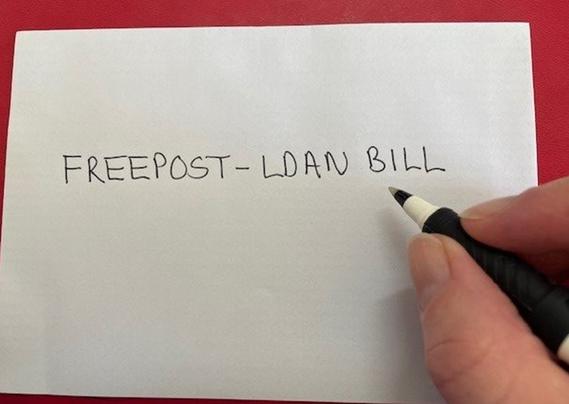 FREEPOST-LDAN BILL